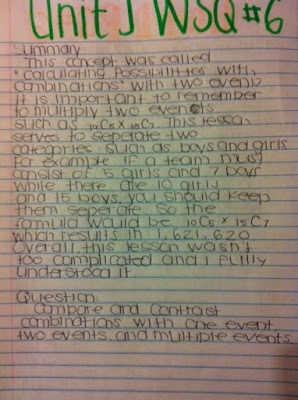 Unit J WSQ #6
Summary
This concept was called
"calculating possibilities with
combinations" with two events
It is important to remember
to multiply two events
such as 10C5 x 15C7. This lesson
serves to seperate two
categories such as boys and girls
For example if a team must
consist of 5 girls and 7 boys
while there are 10 girls
and 15 boys, you should keep
them seperate so the
formula would be 10C5 x 15C7
which results in 1,621,620
Overall this lesson wasn't
too complicated and I fully
understood it.
Question:
Compare and Contrast
combinations with one event,
two events, and multiple events